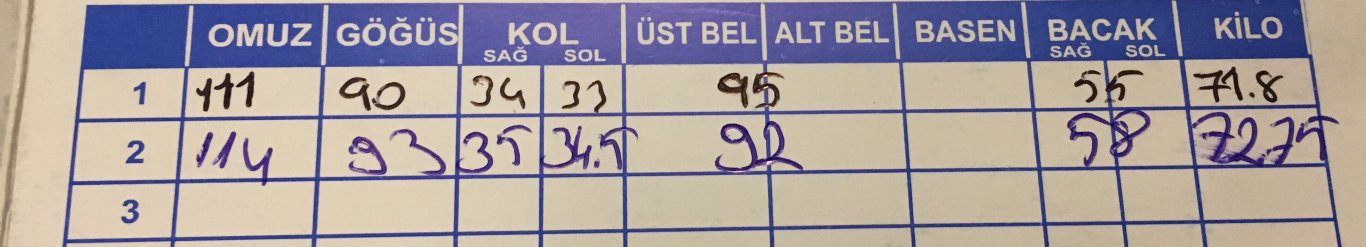 OMUZ GÖĞÜS KOL ÜST BEL ALT BEL BASEN BACAK KİLO
SAĞ SOL SAĞ SOL
1 111 90 34 33 95 55 71.8
2 114 93 35 34.5 92 58 72,75
3